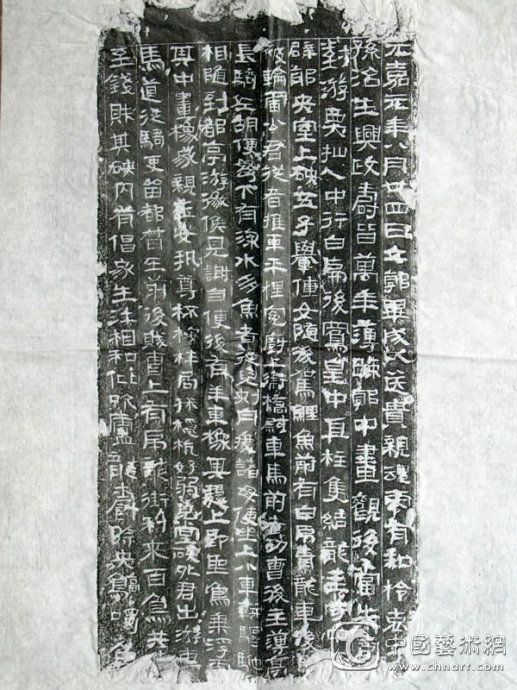 元嘉元年八月廿四日立郭畢成以送貴親魂零有知怜哀子
孫治生興政壽皆萬年薄踈郭中畫觀後當朱爵
對游人中行白虎後鳳皇中直柱隻結龍主守中
辟邪央室上硤五子轝僮女隨後駕鯉魚前有白虎青龍車後
被輪雷公君從者推車乎理冤厨衛橋尉車馬前者功曹後主簿亭
長騎佐胡使弩下有深水多魚者從兒刺舟渡諸母使坐上小車軿驅馳
相隨到都亭游徼候見謝自便後有羊車橡其槥上即聖鳥乘浮雲
其中畫橡家親玉女執尊杯桉柈局好弱皃堂硤外君出游車
馬道從騎吏留都督在前後賊曹上有虎龍銜利來百鳥共持
至錢財其硤內有倡家生汙相和仳吹廬龍爵除央鶴噣魚
中國藝術網
www.chnarr.com